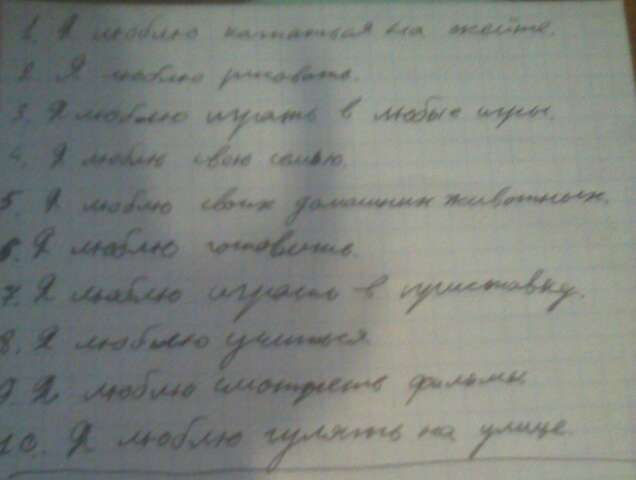 1. Я люблю кататься на скейте.
2. Я люблю рисовать.
3. Я люблю играть в любые игры.
4. Я люблю свою семью.
5. Я люблю своих домашних животных.
6. Я люблю готовить.
7. Я люблю играть в приставку.
8. Я люблю учиться.
9. Я люблю смотреть фильмы
10. Я люблю гулять на улице.